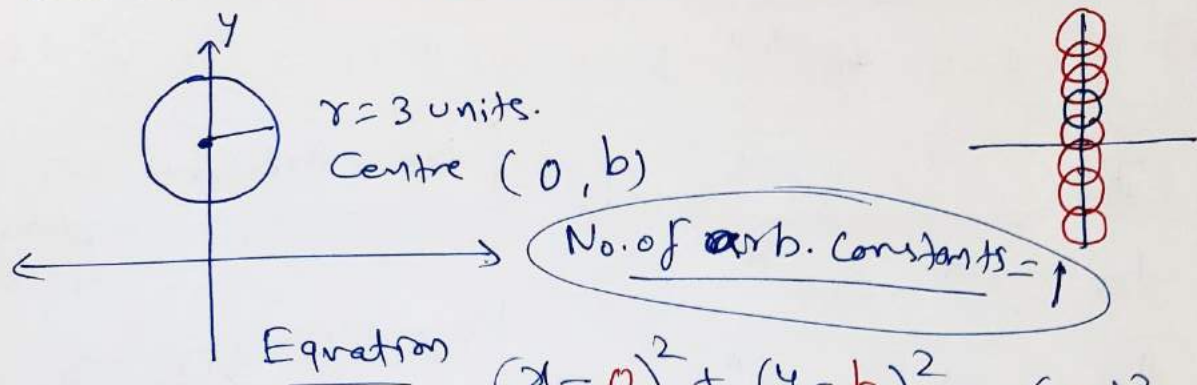 y
r = 3 units.
Centre (0, b)
No. of arb. constants = 1
Equation
(x - 0)² + (y - b)²